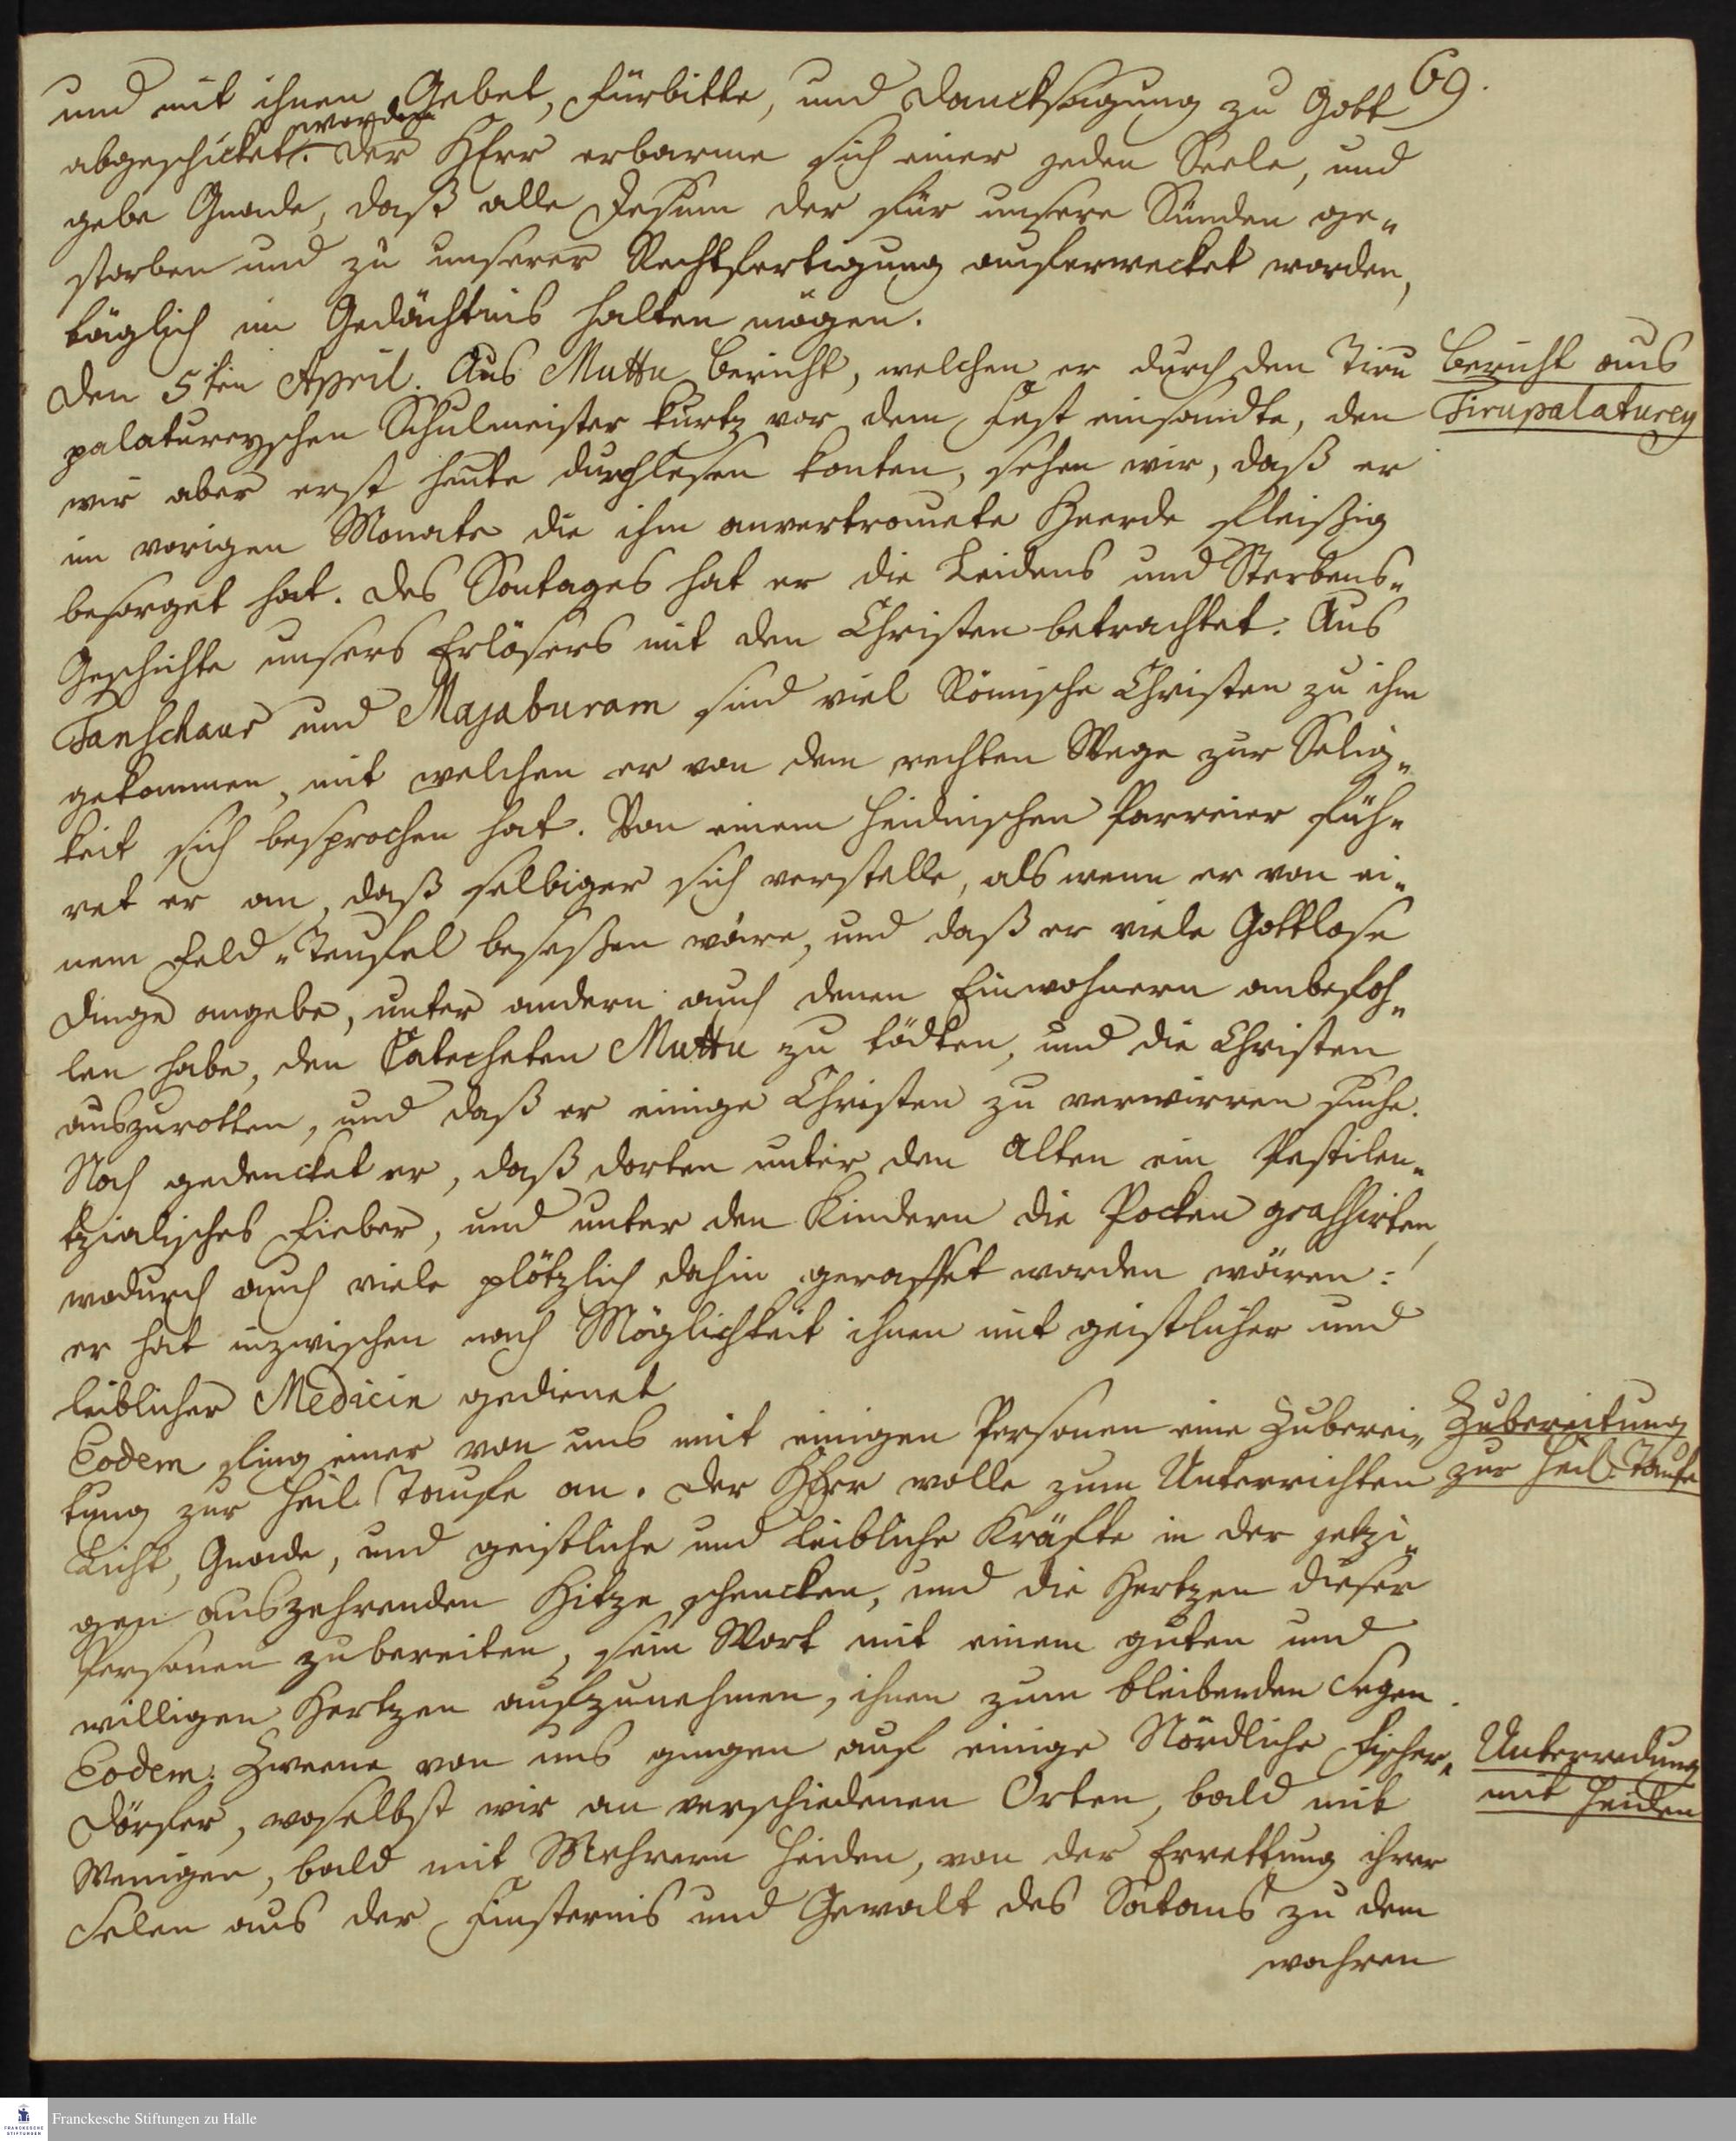 69.
und mit ihnen Gebet, Fürbitte, und Dancksagung zu Gott
worden
abgeschicket. Der HErr erbarme sich einer jeden Seele, und
gebe Gnade, daß alle Jesum der für unsere Sünden ge„
storben und zu unserer Rechtfertigung auferwecket worden,
täglich im Gedächtnis halten mögen.
Den 5ten April. Aus Muttu Bericht, welchen er durch den Tiru
Bericht aus
palatureyschen Schulmeister kurtz vor dem Fest einsandte, den
Tirupalaturey
wir aber erst heute durchlesen konten, sehen wir, daß er
im vorigen Monate die ihm anvertrauete Heerde fleißig
besorget hat. Des Sontages hat er die Leidens und Sterbens„
Geschichte unsers Erlösers mit den Christen betrachtet. Aus
Tanschaur und Majaburam sind viel Römische Christen zu ihm
gekommen, mit welchen er von dem rechten Wege zur Selig„
keit sich besprochen hat. Von einem heidnischen Parreier füh„
ret er an, daß selbiger sich verstelle, als wenn er von ei„
nem Feld„Teufel beseßen wäre, und daß er viele Gottlose
Dinge angebe, unter andern auch denen Einwohnern anbefoh„
len habe, den Catecheten Muttu zu tödten, und die Christen
auszurotten, und daß er einige Christen zu verwirren suche.
Noch gedencket er, daß dorten unter den Alten ein Pestilen„
tzialisches Fieber, und unter den Kindern die Pocken grassirten,
wodurch auch viele plötzlich dahin geraffet worden wären:
er hat inzwischen nach Möglichkeit ihnen mit geistlicher und
leiblicher Medicin gedienet
Eodem fing einer von uns mit einigen Personen eine Zuberei„
Zubereitung
tung zur heil. Taufe an. Der HErr wolle zum Unterrichten
zur heil. Taufe
Licht, Gnade, und geistliche und leibliche Kräfte in der jetzi„
gen auszehrenden Hitze schencken, und die Hertzen dieser
Personen zubereiten, sein Wort mit einem guten und
willigen Hertzen aufzunehmen, ihnen zum bleibenden Segen.
Eodem. Zweene von uns gingen auf einige Nördliche Fischer„
Unterredung
Dörfer, woselbst wir an verschiedenen Orten, bald mit
mit Heiden
Wenigen, bald mit Mehrern Heiden, von der Errettung ihrer
Selen aus der Finsternis und Gewalt des Satans zu dem
wahren
Franckesche Stiftungen zu Halle